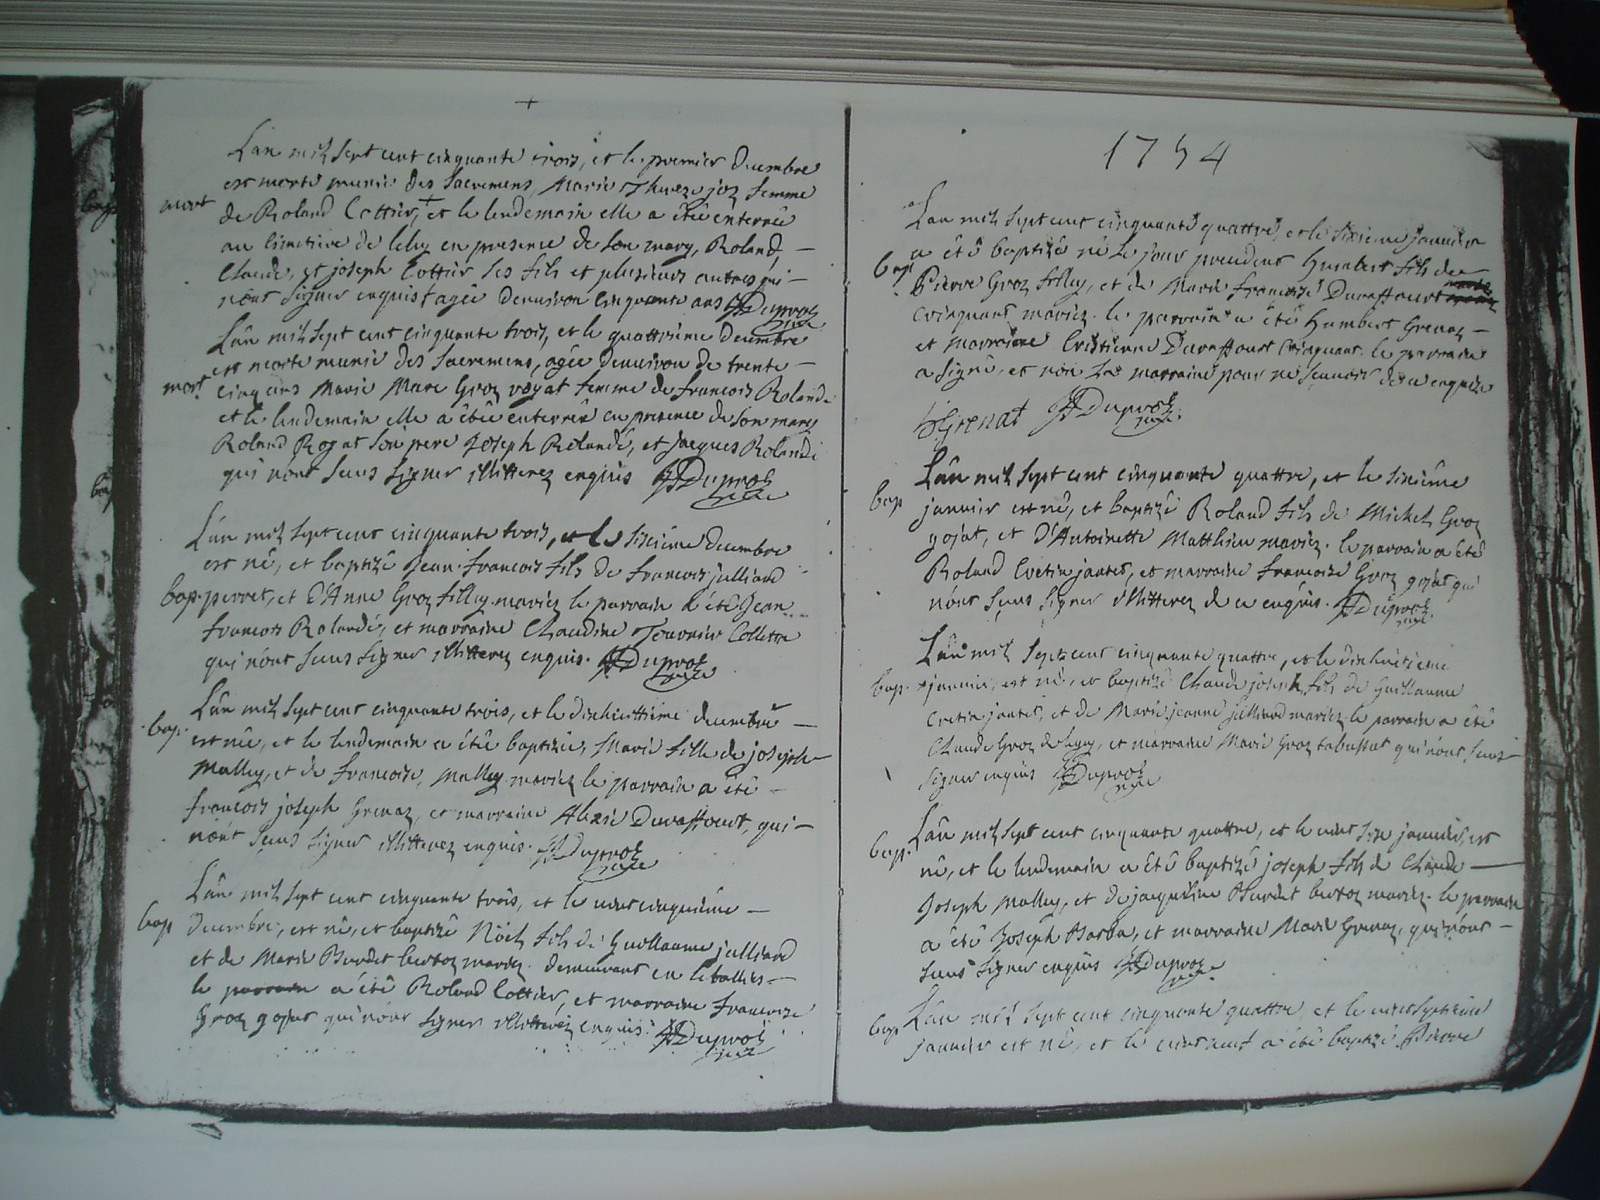 L'an mil sept cent cinquante trois, et le premier decembre
mort
est morte munie des Sacremens, Marie Thereze joz femme
de Roland Cottier, + et le lendemain elle a êtê enterrêe
au cimetiere de lelex en presence de son mary, Roland, —
Claude, et joseph Cottier ses fils et plusieurs autres qui —
n'ont signer enquis + agée denviron cinquante ans Duproz
curé
L'an mil sept cent cinquante trois, et le quattrieme decembre
est morte munie des Sacremens, agée denviron de trente —
mort
cinq ans Marie Groz femme de francois Rolandé
et le lendemain elle a êtê enterrêe en presence de son mary
Roland son pere Joseph Rolandé, et jacques Rolandé
qui n'ont sceus signer illitterez enquis Duproz
curé
L'an mil sept cent cinquante trois, et le sixieme decembre
est nê, et baptizê Jean francois fils de francois julliard
bap. perret, et d'Anne Groz filley mariez le parrain a êtê Jean
francois Rolandé, et marraine Claudine Tournier Collette
qui n'ont sceus signer illitterez enquis. Duproz
curé
L'an mil sept cent cinquante trois, et le dixhuittiéme decembre —
bap.
est nêe, et le lendemain a êtê baptizée, Marie fille de joseph
Malley, et de francoise, Malley mariez le parrain a êtê —
francois joseph Grenaz, et marraine Duraffourt, qui —
n'ont sceus signer illitterez enquis. Duproz
curé
L'an mil sept cent cinquante trois, et le vint cinquiéme —
bap
decembre, est nê, et baptizê Nöel fils de Guillaume julliard
et de Marie Burdet mariez. demeurant en
le parrain a êtê Roland Cottier, et marraine francoise
Groz gojat qui n'ont signer illitterez enquis. Duproz
curé
1754
L'an mil sept cent cinquante quattre, et le sixieme janvier
bap.
a êtê baptizê nê le jour precedent Humbert fils de
Pierre Groz filley, et de Marie francoise Duraffourt
Crinquant mariez. le parrain a êtê Humbert Grenaz —
et marraine Cristienne Duraffourt Crinquant. le parrain
a signê, et non la marraine pour ne scauoir de ce enquize
Grenat Duproz
curé.
L'an mil sept cent cinquante quattre, et le sixiéme
bap
janvier est nê, et baptizê Roland fils de Michel Groz
gojat, et d'Antoinette Matthieu mariez. le parrain a êtê
Roland Cretin jantet, et marraine francoise Groz gojat qui
n'ont sceus signer illitterez de ce enquis. Duproz
curé.
L'an mil sept cent cinquante quattre, et le dixhuitieme
bap.
janvier, est nê, et baptizê Claude joseph, fils de Guillaume
Cretin jantet, et de Marie jeanne julliard mariez. le parrain a êtê
Claude Groz, et marraine Marie Groz tabussat qui n'ont sceus
signer enquis Duproz
curé
L'an mil sept cent cinquante quattre, et le vint six janvier, est
bap.
nê, et le lendemain a êtê baptizê joseph fils de Claude —
Joseph Malley, et de jacqueline Burdet mariez. le parrain
a êtê Joseph Barba, et marraine Marie Grenaz, qui n'ont —
sceus signer enquis Duproz
curé.
bap.
L'an mil sept cent cinquante quattre, et le vint septieme
janvier est nê, et le vint neuf a êtê baptizê Pierre